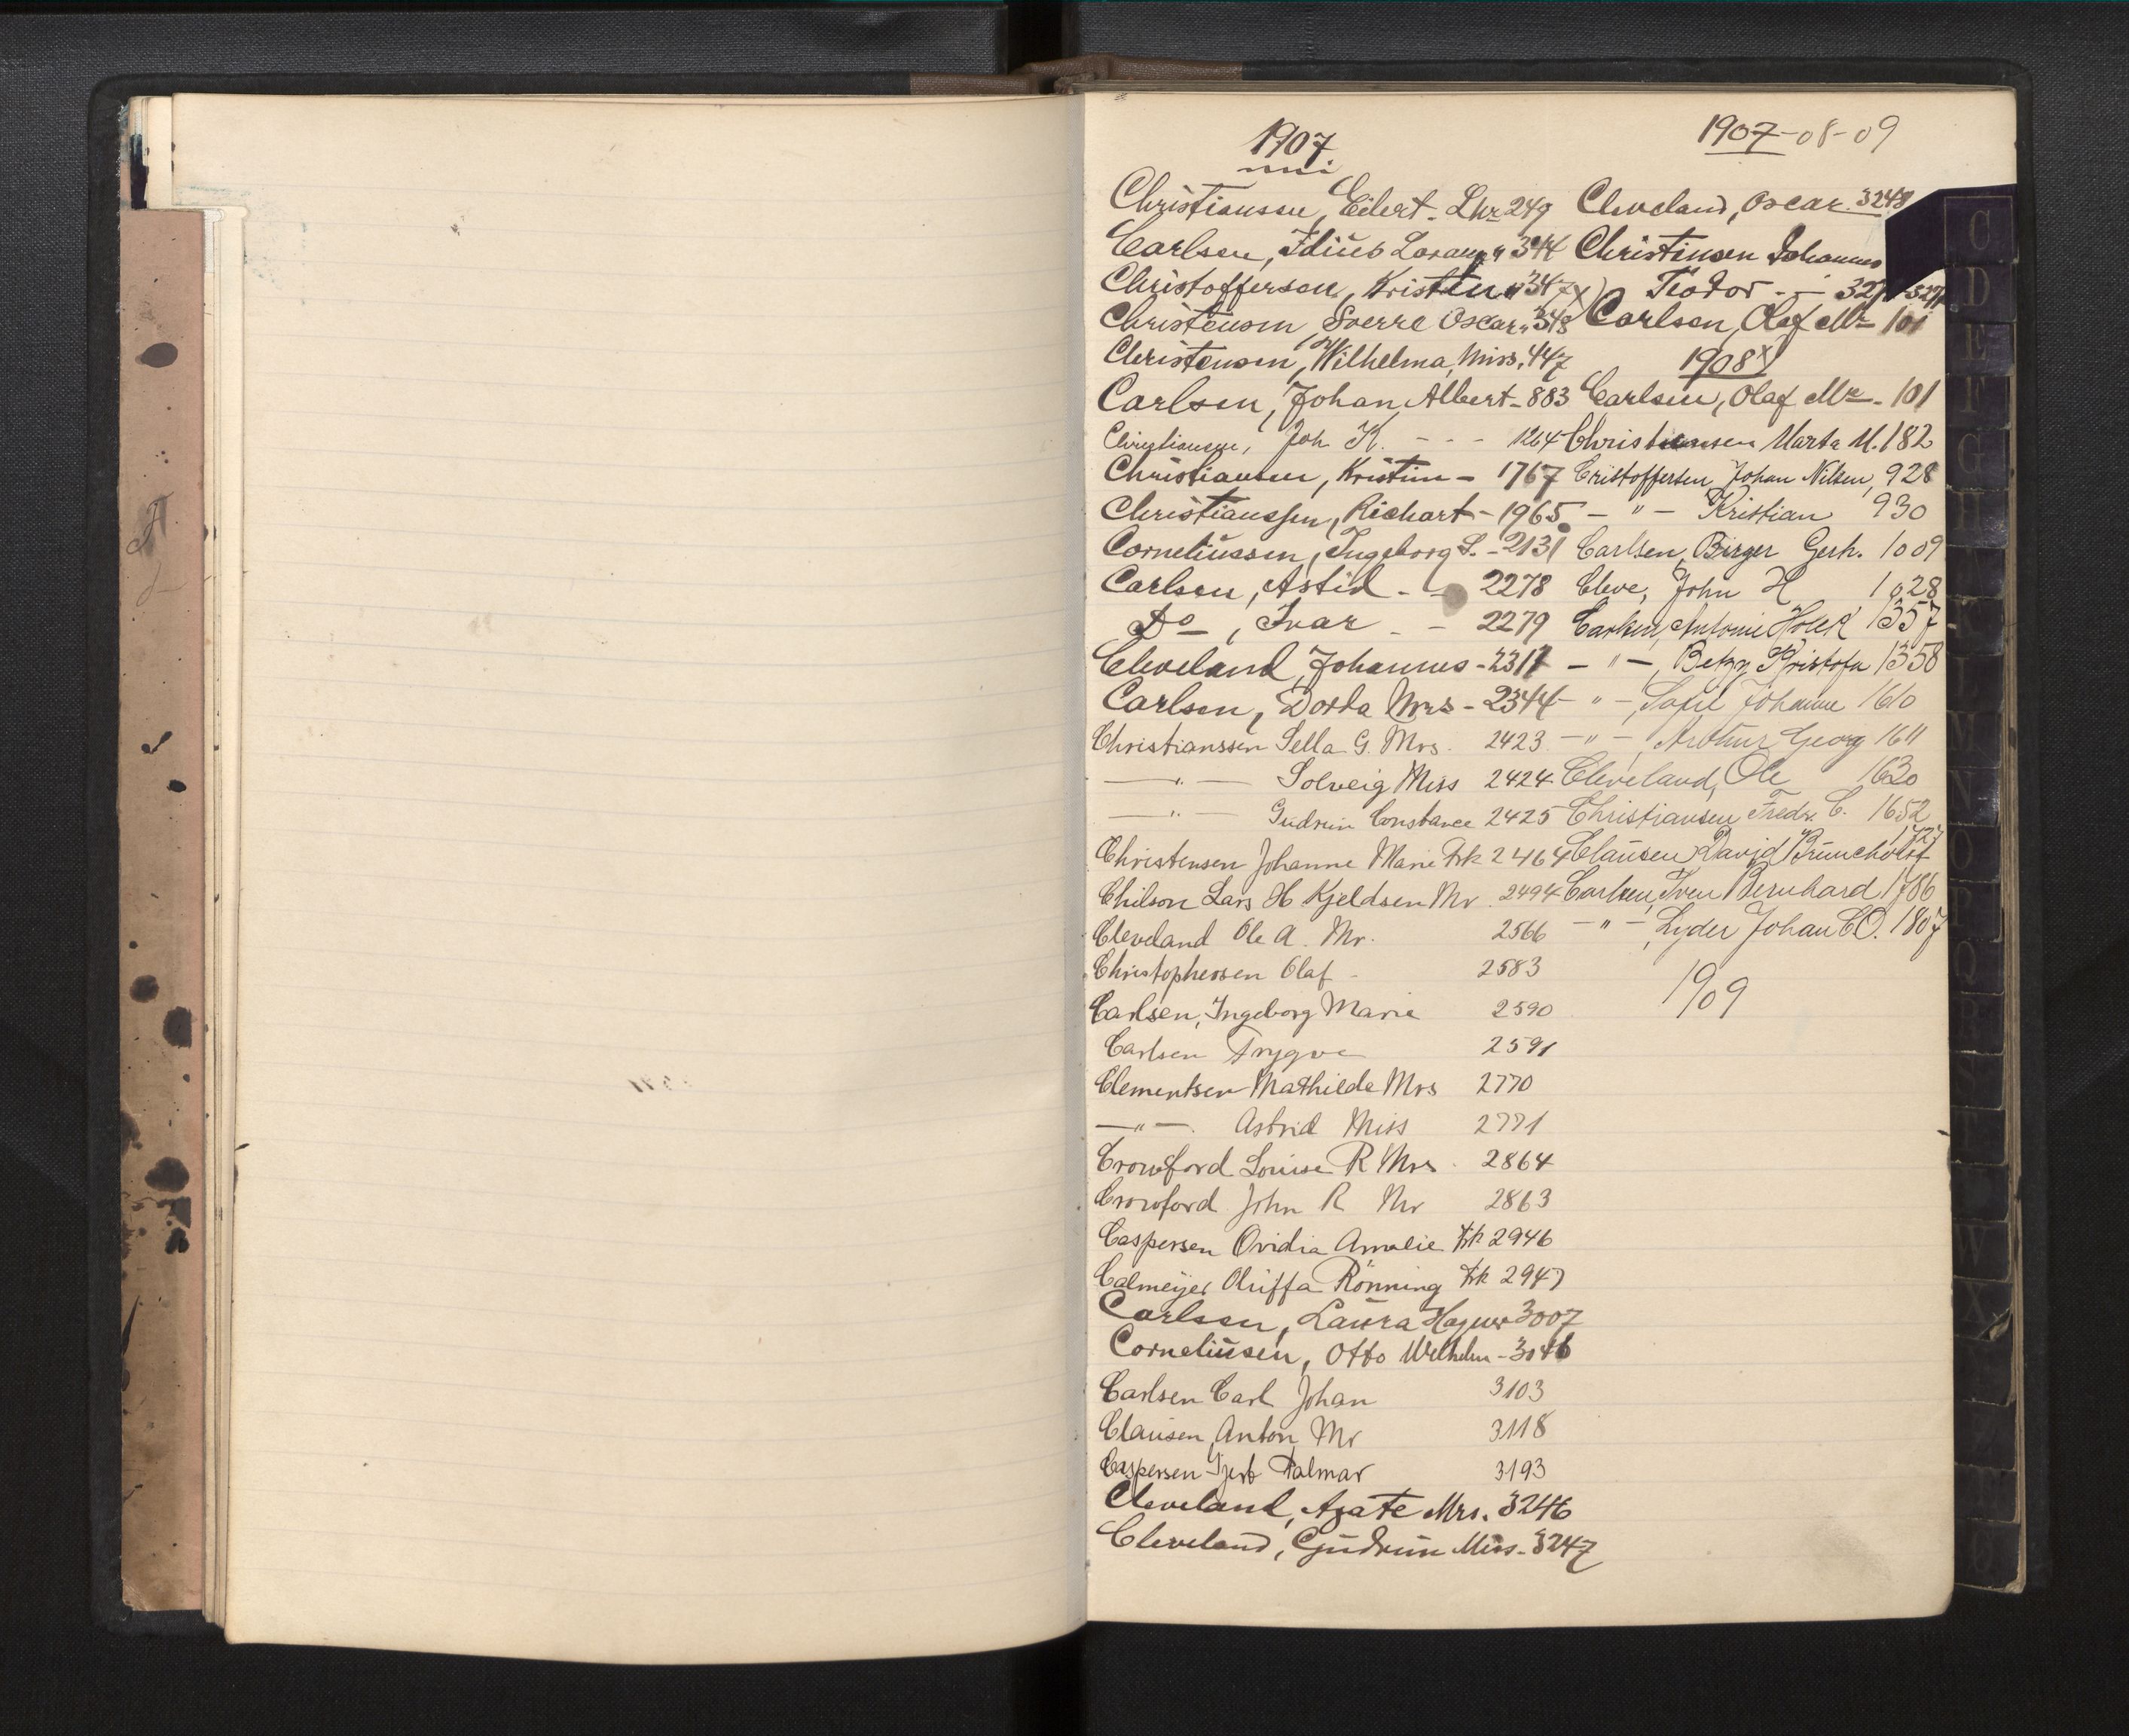 1907
Christiansen, Eilert - Lnr 249
Carlsen, Idius " 344
Christoffersen, Kristen " 347
Christensen, Sverre Oscar " 348
Christensen, Wilhelma, Miss. 447
Carlsen, Johan Albert - 883
Christiansen, Joh K. - - - 1264
Christiansen, Kristine - 1767
Christianssen, Richart - 1965
Corneliussen, Ingeborg S. - 2131
Carlsen, Astid - - 2278
Do, Ivar - - 2279
Cleveland, Johannes - 2317
Carlsen, Dorta Mrs - 2344
Christianssen Sella G. Mrs. 2423
—"— Solveig Miss 2424
—"— Gudrun Constance 2425
Christensen Johanne Marie Frk 2464
Chilson Lars H Kjeldsen Mr. 2494
Cleveland Ole A. Mr. 2566
Christophersen Olaf - 2583
Carlsen, Ingeborg Marie 2590
Carlsen Trygve 2591
Clementsen Mathilde Mrs 2770
—"— Astrid Miss 2771
Crowford Louise R Mrs. 2864
Crowford John R Mr 2863
Caspersen Ovidia Amalie Frk 2946
Calmeijer Oluffa Rönning Frk 2947
Carlsen, Laura 3007
Corneliusen, Otto Wilhelm - 3046
Carlsen Carl Johan 3103
Clausen, Anton, Mr 3118
Caspersen Palmar 3193
Cleveland, Agate Mrs. 3246
Cleveland, Gudrun Miss - 3247
1907-08-09
Cleveland, Oscar. 3248
Christensen Johannes
Teodor - - 327
x) Carlsen, Olaf Mr 101
1908 x)
Carlsen, Olaf Mr - 101
Christiansen Marta M. 182
Cristoffersen, Johan Nilsen, 928
— " — Kristian 930
Carlsen, Birger Gerh. 1009
Cleve, John H 1028
Carlsen, Antonie Holck 1357
— " —, Betzy Kristofa 1358
— " —, Johanne 1610
— " —, Arthur Georg 1611
Cleveland, Ole 1630
Christiansen Fredr. C. 1652
Clausen David 1727
Carlsen, Bernhard 1786
— " —, Lyder Johan C O. 1807
1909
C
D
E
F
G
H
M
N
O
P
Q
R
X